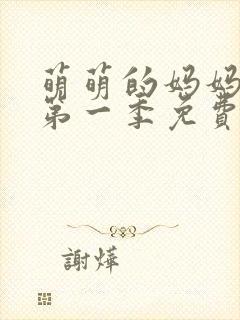 萌萌的妈妈
第一季免費
謝燁